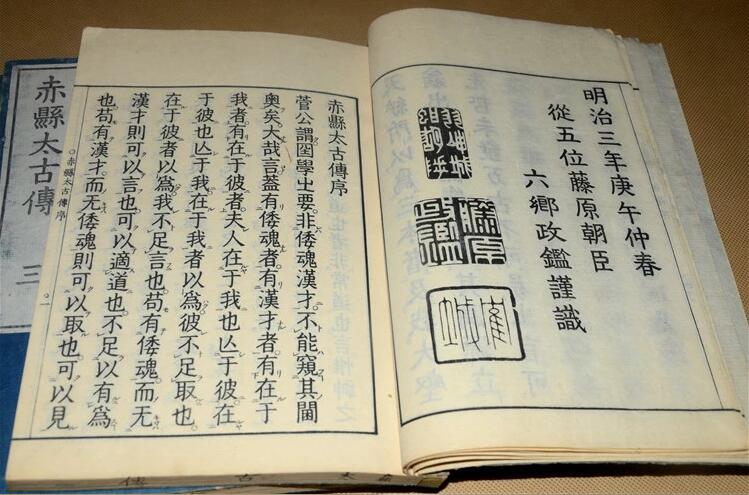 明治三年庚午仲春
從五位藤原朝臣
六鄉政鑑謹識
藤原
政鑑
赤縣太古傳序
菅公謂圀學㞢要非倭魂漢才不能窺其閫
奧矣大哉言蓋有倭魂者有漢才者有在于
我者有在於彼者夫人在于我也亾于彼在
于彼也亾于我在于我者以爲彼不足取也
在于彼者以爲我不足言也苟有倭魂而无
漢才則可以言也可以適道也不足以有爲
也苟有漢才而无倭魂則可以取也可以見
赤縣太古傳序 一
赤縣太古傳 三
太古傳